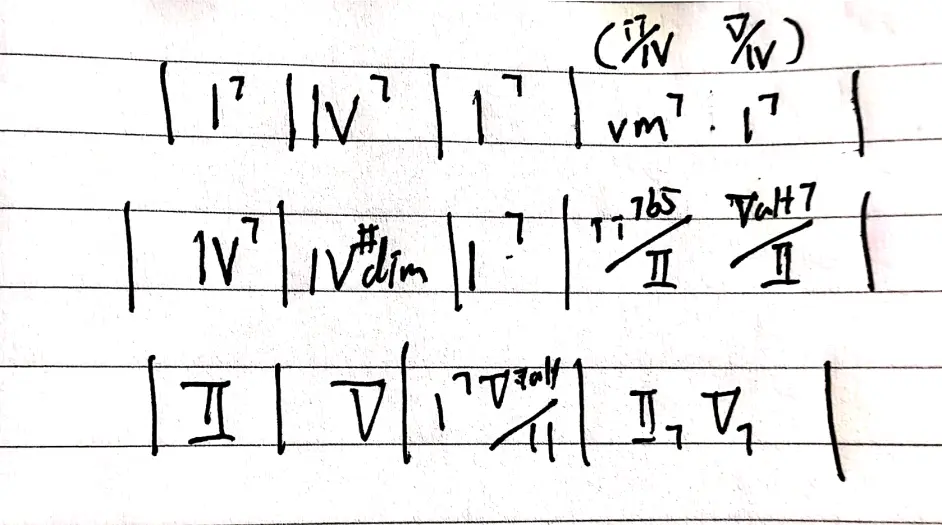 (ii7/IV V/IV)
| I7 | IV7 | I7 | vm7 . I7 |
| IV7 | IV#dim | I7 | ii7b5/II Valt7/II |
| II | V | I7 V7alt/II | II7 V7 |